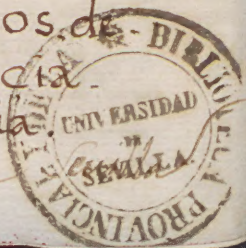 os. de.
cia.
la.
BIBLIOTECA PROVINCIAL Y DE LA
UNIVERSIDAD
DE
SEVILLA.